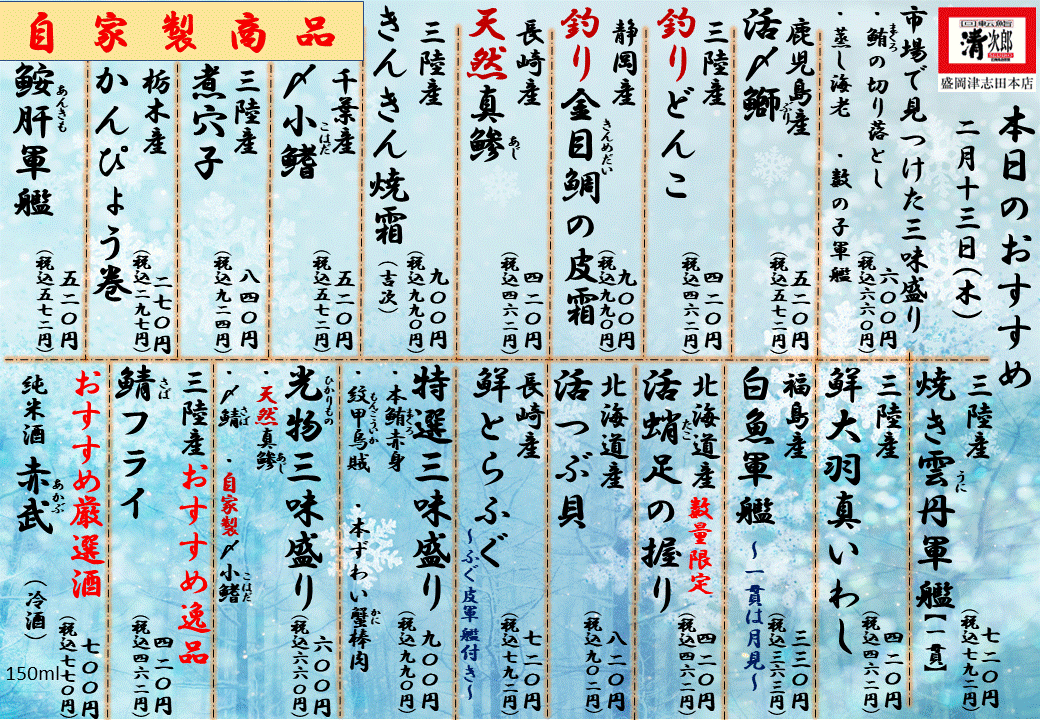 回転鮨
清次郎
SEIJIRO
盛岡津志田本店
本日のおすすめ
二月十三日(木)
市場で見つけた三味盛り
・鮪の切り落とし
まぐろ
・蒸し海老 ・数の子軍艦
六〇〇円
(税込六六〇円)
鹿児島産
活〆鰤
ぶり
五二〇円
(税込五七二円)
三陸産
釣りどんこ
四二〇円
(税込四六二円)
静岡産
釣り金目鯛の皮霜
きんめだい
九〇〇円
(税込九九〇円)
長崎産
天然真鯵
あじ
四二〇円
(税込四六二円)
三陸産
きんきん焼霜
(吉次)
九〇〇円
(税込九九〇円)
自家製商品
千葉産
〆小鰭
こはだ
五二〇円
(税込五七二円)
三陸産
煮穴子
八四〇円
(税込九二四円)
栃木産
かんぴょう巻
二七〇円
(税込二九七円)
鮟肝軍艦
あんきも
五二〇円
(税込五七二円)
三陸産
焼き雲丹軍艦【一貫】
うに
七二〇円
(税込七九二円)
三陸産
鮮大羽真いわし
四二〇円
(税込四六二円)
福島産
白魚軍艦
～一貫は月見～
三三〇円
(税込三六三円)
北海道産 数量限定
活蛸足の握り
たこ
四二〇円
(税込四六二円)
北海道産
活つぶ貝
八二〇円
(税込九〇二円)
長崎産
鮮とらふぐ
～ふぐ皮軍艦付き～
七二〇円
(税込七九二円)
特選三味盛り
・本鮪赤身
まぐろ
・本ずわい蟹棒肉
かに
・紋甲烏賊
もんこういか
九〇〇円
(税込九九〇円)
光物三味盛り
ひかりもの
・天然真鯵
あじ
・〆鯖
さば
・自家製〆小鰭
こはだ
六〇〇円
(税込六六〇円)
おすすめ逸品
三陸産
鯖フライ
さば
四二〇円
(税込四六二円)
おすすめ厳選酒
純米酒 赤武 (冷酒)
あかぶ
150ml
七〇〇円
(税込七七〇円)